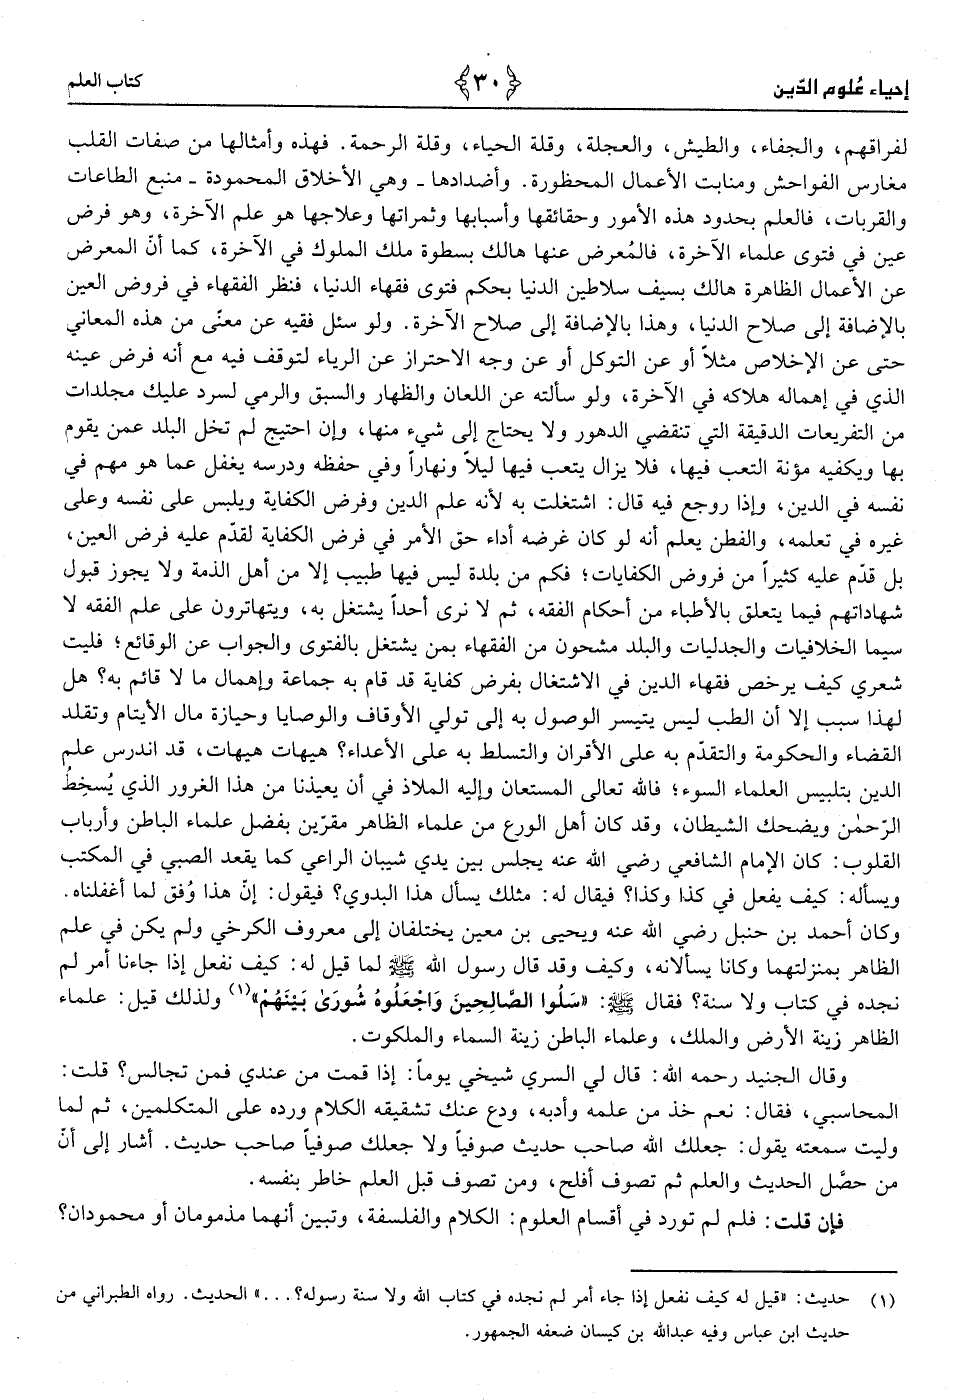 إحياء عُلوم الدّين ﴿٣٠﴾ كتاب العلم
لفراقهم، والجفاء، والطيش، والعجلة، وقلة الحياء، وقلة الرحمة. فهذه وأمثالها من صفات القلب
مغارس الفواحش ومنابت الأعمال المحظورة. وأضدادها ـ وهي الأخلاق المحمودة ـ منبع الطاعات
والقربات، فالعلم بحدود هذه الأمور وحقائقها وأسبابها وثمراتها وعلاجها هو علم الآخرة، وهو فرض
عين في فتوى علماء الآخرة، فالمُعرض عنها هالك بسطوة ملك الملوك في الآخرة، كما أنّ المعرض
عن الأعمال الظاهرة هالك بسيف سلاطين الدنيا بحكم فتوى فقهاء الدنيا، فنظر الفقهاء في فروض العين
بالإضافة إلى صلاح الدنيا، وهذا بالإضافة إلى صلاح الآخرة. ولو سئل فقيه عن معنًى من هذه المعاني
حتى عن الإخلاص مثلاً أو عن التوكل أو عن وجه الاحتراز عن الرياء لتوقف فيه مع أنه فرض عينه
الذي في إهماله هلاكه في الآخرة، ولو سألته عن اللعان والظهار والسبق والرمي لسرد عليك مجلدات
من التفريعات الدقيقة التي تنقضي الدهور ولا يحتاج إلى شيء منها، وإن احتيج لم تخل البلد عمن يقوم
بها ويكفيه مؤنة التعب فيها، فلا يزال يتعب فيها ليلاً ونهاراً وفي حفظه ودرسه يغفل عما هو مهم في
نفسه في الدين، وإذا روجع فيه قال: اشتغلت به لأنه علم الدين وفرض الكفاية ويلبس على نفسه وعلى
غيره في تعلمه، والفطن يعلم أنه لو كان غرضه أداء حق الأمر في فرض الكفاية لقدّم عليه فرض العين،
بل قدّم عليه كثيراً من فروض الكفايات؛ فكم من بلدة ليس فيها طبيب إلا من أهل الذمة ولا يجوز قبول
شهاداتهم فيما يتعلق بالأطباء من أحكام الفقه، ثم لا نرى أحداً يشتغل به، ويتهاترون على علم الفقه لا
سيما الخلافيات والجدليات والبلد مشحون من الفقهاء بمن يشتغل بالفتوى والجواب عن الوقائع؛ فليت
شعري كيف يرخص فقهاء الدين في الاشتغال بفرض كفاية قد قام به جماعة وإهمال ما لا قائم به؟ هل
لهذا سبب إلا أن الطب ليس يتيسر الوصول به إلى تولي الأوقاف والوصايا وحيازة مال الأيتام وتقلد
القضاء والحكومة والتقدّم به على الأقران والتسلط به على الأعداء؟ هيهات هيهات، قد اندرس علم
الدين بتلبيس العلماء السوء؛ فالله تعالى المستعان وإليه الملاذ في أن يعيذنا من هذا الغرور الذي يُسخِطُ
الرّحمٰن ويضحك الشيطان، وقد كان أهل الورع من علماء الظاهر مقرّين بفضل علماء الباطن وأرباب
القلوب: كان الإمام الشافعي رضي الله عنه يجلس بين يدي شيبان الراعي كما يقعد الصبي في المكتب
ويسأله: كيف يفعل في كذا وكذا؟ فيقال له: مثلك يسأل هذا البدوي؟ فيقول: إنّ هذا وُفق لما أغفلناه.
وكان أحمد بن حنبل رضي الله عنه ويحيى بن معين يختلفان إلى معروف الكرخي ولم يكن في علم
الظاهر بمنزلتهما وكانا يسألانه، وكيف وقد قال رسول الله ﷺ لما قيل له: كيف نفعل إذا جاءنا أمر لم
نجده في كتاب ولا سنة؟ فقال ﷺ: «سَلُوا الصَّالِحِينَ وَاجْعَلُوهُ شُورَىٰ بَيْنَهُمْ»(١) ولذلك قيل: علماء
الظاهر زينة الأرض والملك، وعلماء الباطن زينة السماء والملكوت.
وقال الجنيد رحمه الله: قال لي السري شيخي يوماً: إذا قمت من عندي فمن تجالس؟ قلت:
المحاسبي، فقال: نعم خذ من علمه وأدبه، ودع عنك تشقيقه الكلام ورده على المتكلمين، ثم لما
وليت سمعته يقول: جعلك الله صاحب حديث صوفياً ولا جعلك صوفياً صاحب حديث. أشار إلى أنّ
من حصَّل الحديث والعلم ثم تصوف أفلح، ومن تصوف قبل العلم خاطر بنفسه.
فإن قلت: فلم لم تورد في أقسام العلوم: الكلام والفلسفة، وتبين أنهما مذمومان أو محمودان؟
(١) حديث: «قيل له كيف نفعل إذا جاء أمر لم نجده في كتاب الله ولا سنة رسوله؟...» الحديث. رواه الطبراني من
حديث ابن عباس وفيه عبدالله بن كيسان ضعفه الجمهور.